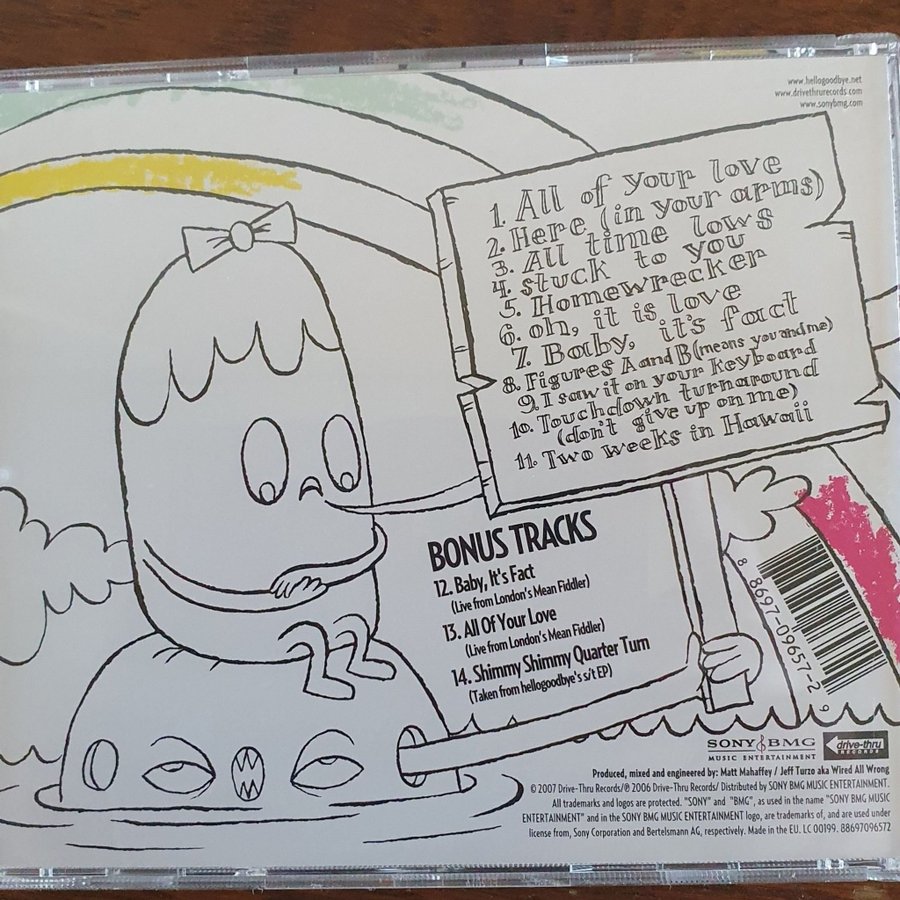 www.hellogoodbye.net
www.drivethrurecords.com
www.sonybmg.com
1. All of your love
2. Here (in your arms)
3. All time lows
4. Stuck to you
5. Homewrecker
6. oh, it is love
7. Baby, it's fact
8. Figures A and B (means you and me)
9. I saw it on your keyboard
10. Touchdown turnaround
(don't give up on me)
11. Two weeks in Hawaii
BONUS TRACKS
12. Baby, It's Fact
(Live from London's Mean Fiddler)
13. All Of Your Love
(Live from London's Mean Fiddler)
14. Shimmy Shimmy Quarter Turn
(Taken from hellogoodbye's s/t EP)
8 8697-09657-2 9
SONY BMG
MUSIC ENTERTAINMENT
drive-thru
RECORDS
Produced, mixed and engineered by: Matt Mahaffey / Jeff Turzo aka Wired All Wrong
© 2007 Drive-Thru Records/℗ 2006 Drive-Thru Records/ Distributed by SONY BMG MUSIC ENTERTAINMENT.
All trademarks and logos are protected. "SONY" and "BMG", as used in the name "SONY BMG MUSIC
ENTERTAINMENT" and in the SONY BMG MUSIC ENTERTAINMENT logo, are trademarks of, and are used under
license from, Sony Corporation and Bertelsmann AG, respectively. Made in the EU. LC 00199. 88697096572